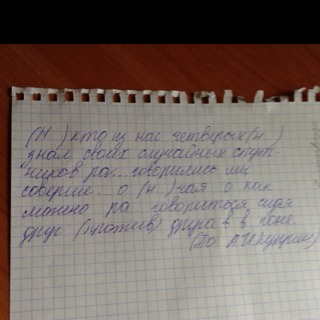 (Н )кто из нас четверых (н )
знал своих случайных спут-
ников ра... говорились мы
соверше.. о (н )чая о как
можно ра говориться сидя
друг (против) друга в в
(По А И Куприн)